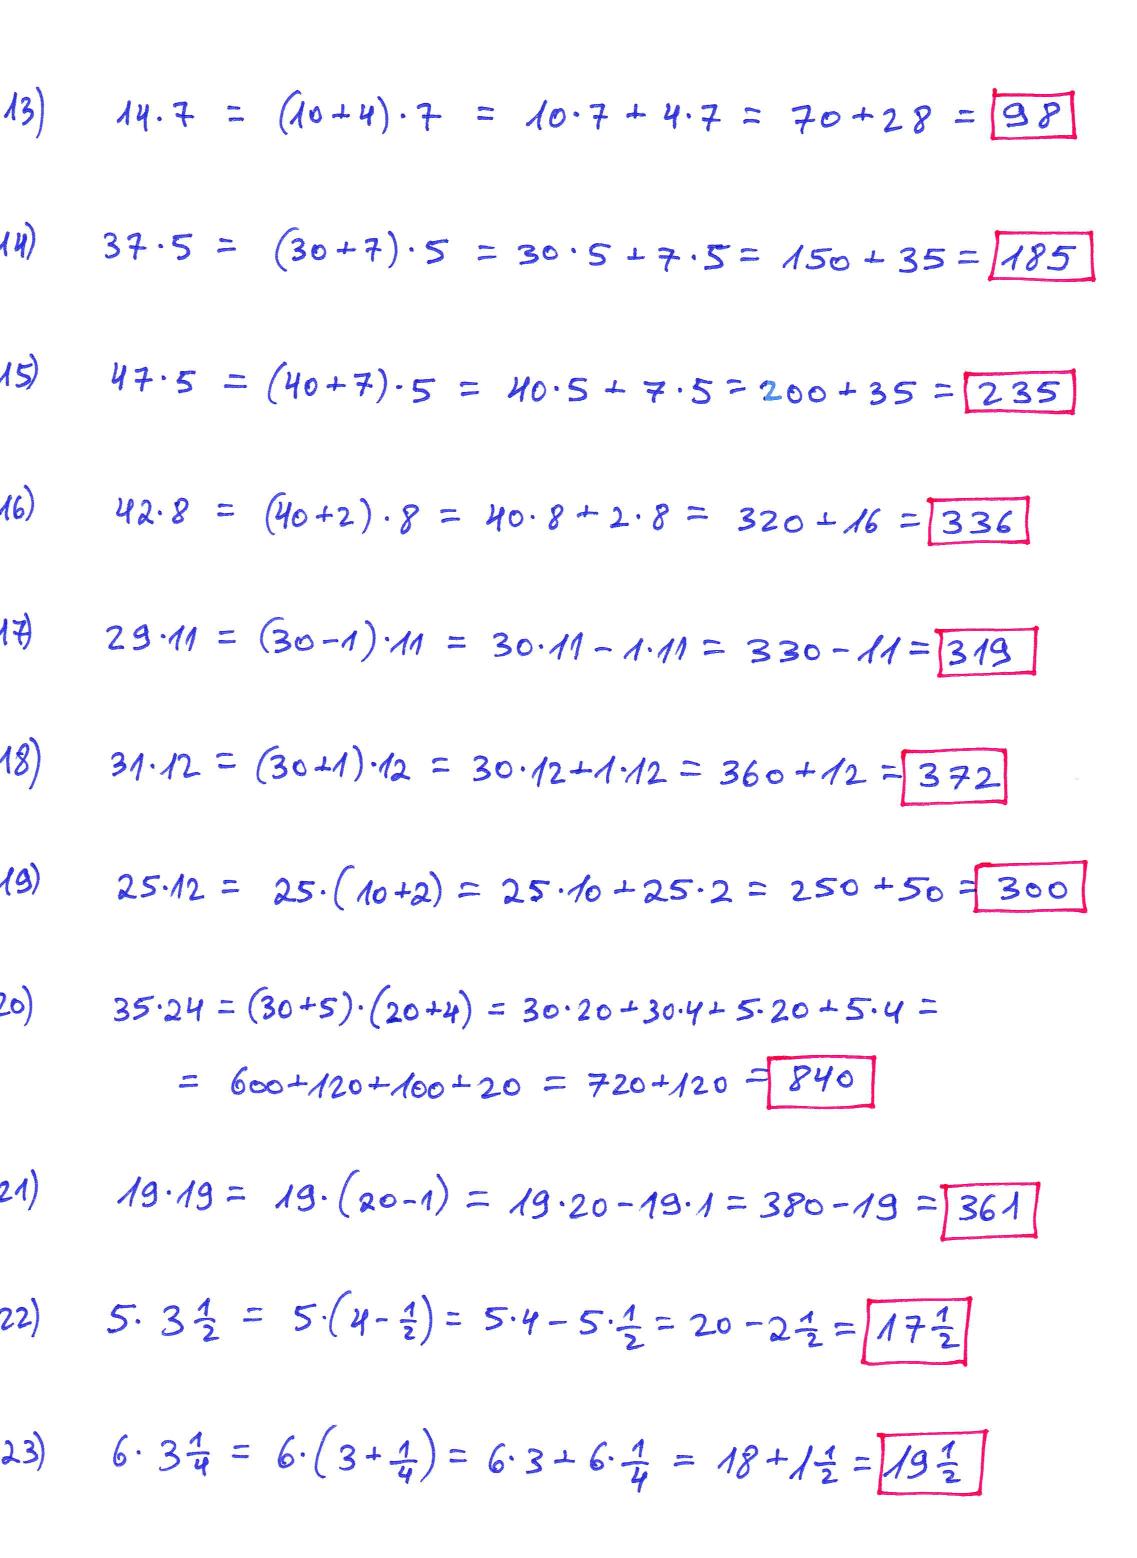 13) 14·7 = (10+4)·7 = 10·7 + 4·7 = 70+28 = 98
14) 37·5 = (30+7)·5 = 30·5 + 7·5 = 150 + 35 = 185
15) 47·5 = (40+7)·5 = 40·5 + 7·5 = 200 + 35 = 235
16) 42·8 = (40+2)·8 = 40·8 + 2·8 = 320 + 16 = 336
17) 29·11 = (30-1)·11 = 30·11 - 1·11 = 330 - 11 = 319
18) 31·12 = (30+1)·12 = 30·12+1·12 = 360+12 = 372
19) 25·12 = 25·(10+2) = 25·10 + 25·2 = 250 + 50 = 300
20) 35·24 = (30+5)·(20+4) = 30·20+30·4+5·20+5·4 =
= 600+120+100+20 = 720+120 = 840
21) 19·19 = 19·(20-1) = 19·20 - 19·1 = 380 - 19 = 361
22) 5· 3 1/2 = 5·(4 - 1/2) = 5·4 - 5· 1/2 = 20 - 2 1/2 = 17 1/2
23) 6· 3 1/4 = 6·(3 + 1/4) = 6·3 + 6· 1/4 = 18 + 1 1/2 = 19 1/2